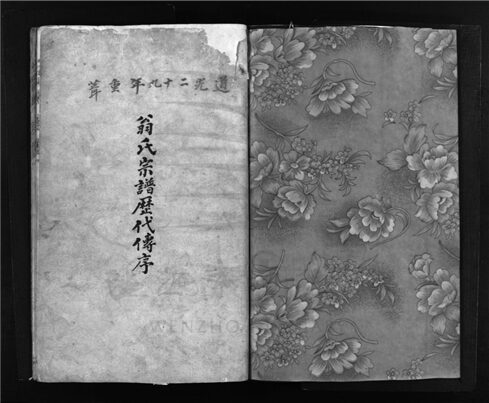 道光二十九年重葺
翁氏宗譜歷代傳序
WENZHO